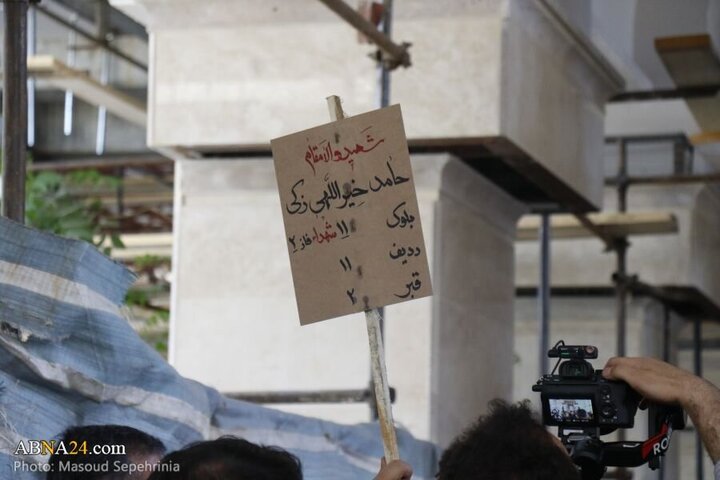 شهید والامقام
حامد خیراللهی زکی
بلوک ۱۱ شهداء فاز ۲
ردیف ۱۱
قبر ۲
ABNA24.com
Photo: Masoud Sepehrinia